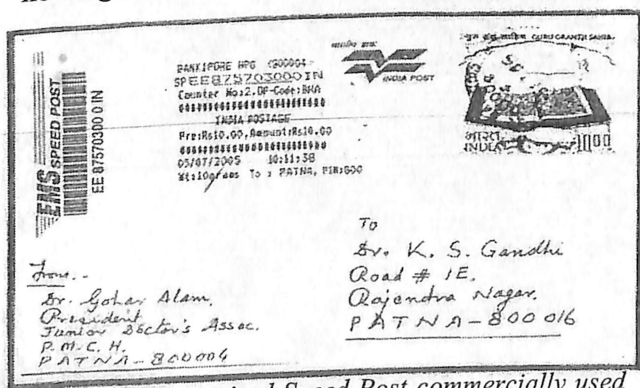 EMS SPEED POST
EE 87570300 0 IN
BANKIPORE HPO <800004>
SPEE875703000IN
Counter No:2,OP-Code:BKA
INDIA POSTAGE
Prr:Rs10.00,Amount:Rs10.00
05/07/2005 10:11:38
Wt:10grams To : PATNA, PIN:800
INDIA POST
GURU GRANTH SAHIB
भारत
INDIA
To
Dr. K. S. Gandhi
Road # 1E,
Rajendra Nagar,
PATNA-800016
From:-
Dr. Gohar Alam,
President
Junior Doctor's Assoc.
P.M.C.H.
PATNA-800004
Speed Post commercially used